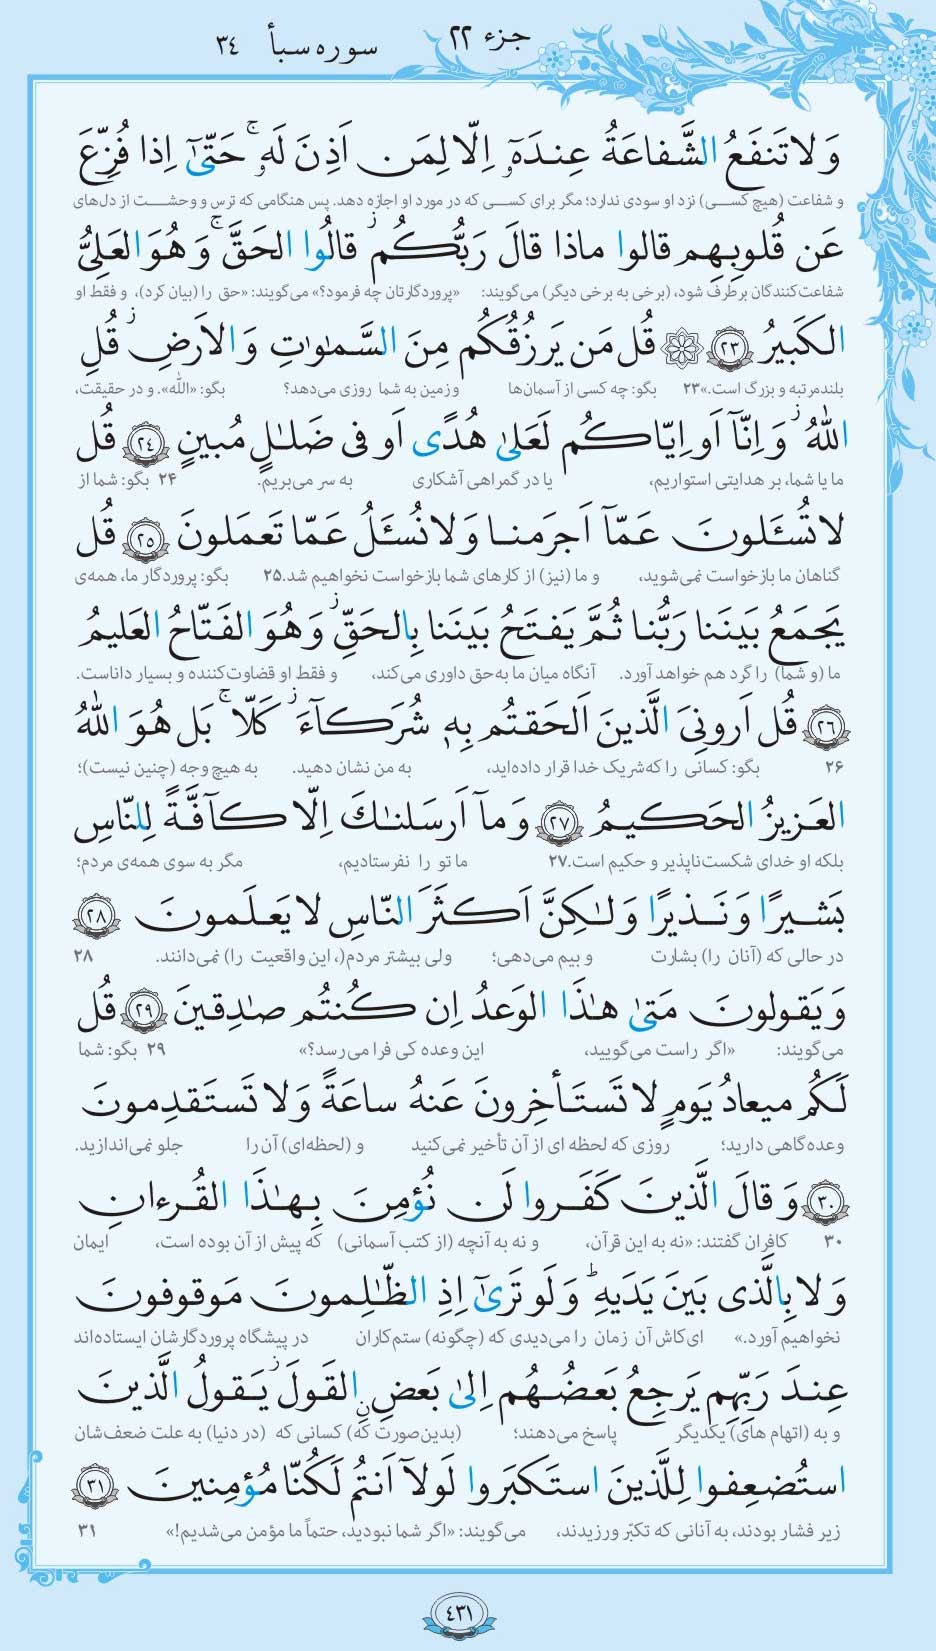 جزء ۲۲
سوره سبأ ۳۴
وَ لا تَنفَعُ الشَّفاعَةُ عِندَهٗٓ اِلّا لِمَن اَذِنَ لَهٗ ۚ حَتّىٰٓ اِذا فُزِّعَ
و شفاعت (هیچ کسی) نزد او سودی ندارد؛ مگر برای کسی که در مورد او اجازه دهد. پس هنگامی که ترس و وحشت از دل‌های
عَن قُلوبِهِم قالوا ماذا قالَ رَبُّكُم ۖ قالُوا الحَقَّ ۚ وَ هُوَ العَلِىُّ
شفاعت‌کنندگان برطرف شود، (برخی به برخی دیگر) می‌گویند: «پروردگارتان چه فرمود؟» می‌گویند: «حق را (بیان کرد)، و فقط او
الكَبيرُ ﴿۲۳﴾ ۞ قُل مَن يَرزُقُكُم مِنَ السَّمٰوٰتِ وَ الاَرضِ ۖ قُلِ
بلندمرتبه و بزرگ است.» ۲۳ بگو: چه کسی از آسمان‌ها و زمین به شما روزی می‌دهد؟ بگو: «اللّٰه». و در حقیقت،
اللهُ ۖ وَ اِنّآ اَو اِيّاكُم لَعَلىٰ هُدًى اَو فى ضَلٰلٍ مُبينٍ ﴿۲۴﴾ قُل
ما یا شما، بر هدایتی استواریم، یا در گمراهی آشکاری به سر می‌بریم. ۲۴ بگو: شما از
لا تُسـَٔلونَ عَمّآ اَجرَمنا وَ لا نُسـَٔلُ عَمّا تَعمَلونَ ﴿۲۵﴾ قُل
گناهان ما بازخواست نمی‌شوید، و ما (نیز) از کارهای شما بازخواست نخواهیم شد. ۲۵ بگو: پروردگار ما، همه‌ی
يَجمَعُ بَينَنا رَبُّنا ثُمَّ يَفتَحُ بَينَنا بِالحَقِّ ۖ وَ هُوَ الفَتّاحُ العَليمُ
ما (و شما) را گرد هم خواهد آورد. آنگاه میان ما به‌حق داوری می‌کند، و فقط او قضاوت‌کننده و بسیار داناست.
﴿۲۶﴾ قُل اَرونِىَ الَّذينَ اَلحَقتُم بِهٖ شُرَكآءَ ۖ كَلّا ۚ بَل هُوَ اللهُ
۲۶ بگو: کسانی را که شریک خدا قرار داده‌اید، به من نشان دهید. به هیچ وجه (چنین نیست)؛
العَزيزُ الحَكيمُ ﴿۲۷﴾ وَ مآ اَرسَلنٰكَ اِلّا كآفَّةً لِلنّاسِ
بلکه او خدای شکست‌ناپذیر و حکیم است. ۲۷ ما تو را نفرستادیم، مگر به سوی همه‌ی مردم؛
بَشيرًا وَ نَذيرًا وَ لٰكِنَّ اَكثَرَ النّاسِ لا يَعلَمونَ ﴿۲۸﴾
در حالی که (آنان را) بشارت و بیم می‌دهی؛ ولی بیشتر مردم(، این واقعیت را) نمی‌دانند. ۲۸
وَ يَقولونَ مَتىٰ هٰذَا الوَعدُ اِن كُنتُم صٰدِقينَ ﴿۲۹﴾ قُل
می‌گویند: «اگر راست می‌گویید، این وعده کی فرا می‌رسد؟» ۲۹ بگو: شما
لَكُم ميعادُ يَومٍ لا تَستَأخِرونَ عَنهُ ساعَةً وَ لا تَستَقدِمونَ
وعده‌گاهی دارید؛ روزی که لحظه ای از آن تأخیر نمی‌کنید و (لحظه‌ای) آن را جلو نمی‌اندازید.
﴿۳۰﴾ وَ قالَ الَّذينَ كَفَروا لَن نُؤمِنَ بِهٰذَا القُرءانِ
۳۰ کافران گفتند: «نه به این قرآن، و نه به آنچه (از کتب آسمانی) که پیش از آن بوده است، ایمان
وَ لا بِالَّذى بَينَ يَدَيهِ ۗ وَ لَو تَرىٰٓ اِذِ الظّٰلِمونَ مَوقوفونَ
نخواهیم آورد.» ای‌کاش آن زمان را می‌دیدی که (چگونه) ستم‌کاران در پیشگاه پروردگارشان ایستاده‌اند
عِندَ رَبِّهِم يَرجِعُ بَعضُهُم اِلىٰ بَعضٍ القَولَ ۖ يَقولُ الَّذينَ
و به (اتهام های) یکدیگر پاسخ می‌دهند؛ (بدین‌صورت که) کسانی که (در دنیا) به علت ضعف‌شان
استُضعِفوا لِلَّذينَ استَكبَروا لَولآ اَنتُم لَكُنّا مُؤمِنينَ ﴿۳۱﴾
زیر فشار بودند، به آنانی که تکبّر ورزیدند، می‌گویند: «اگر شما نبودید، حتماً ما مؤمن می‌شدیم!» ۳۱
۴۳۱